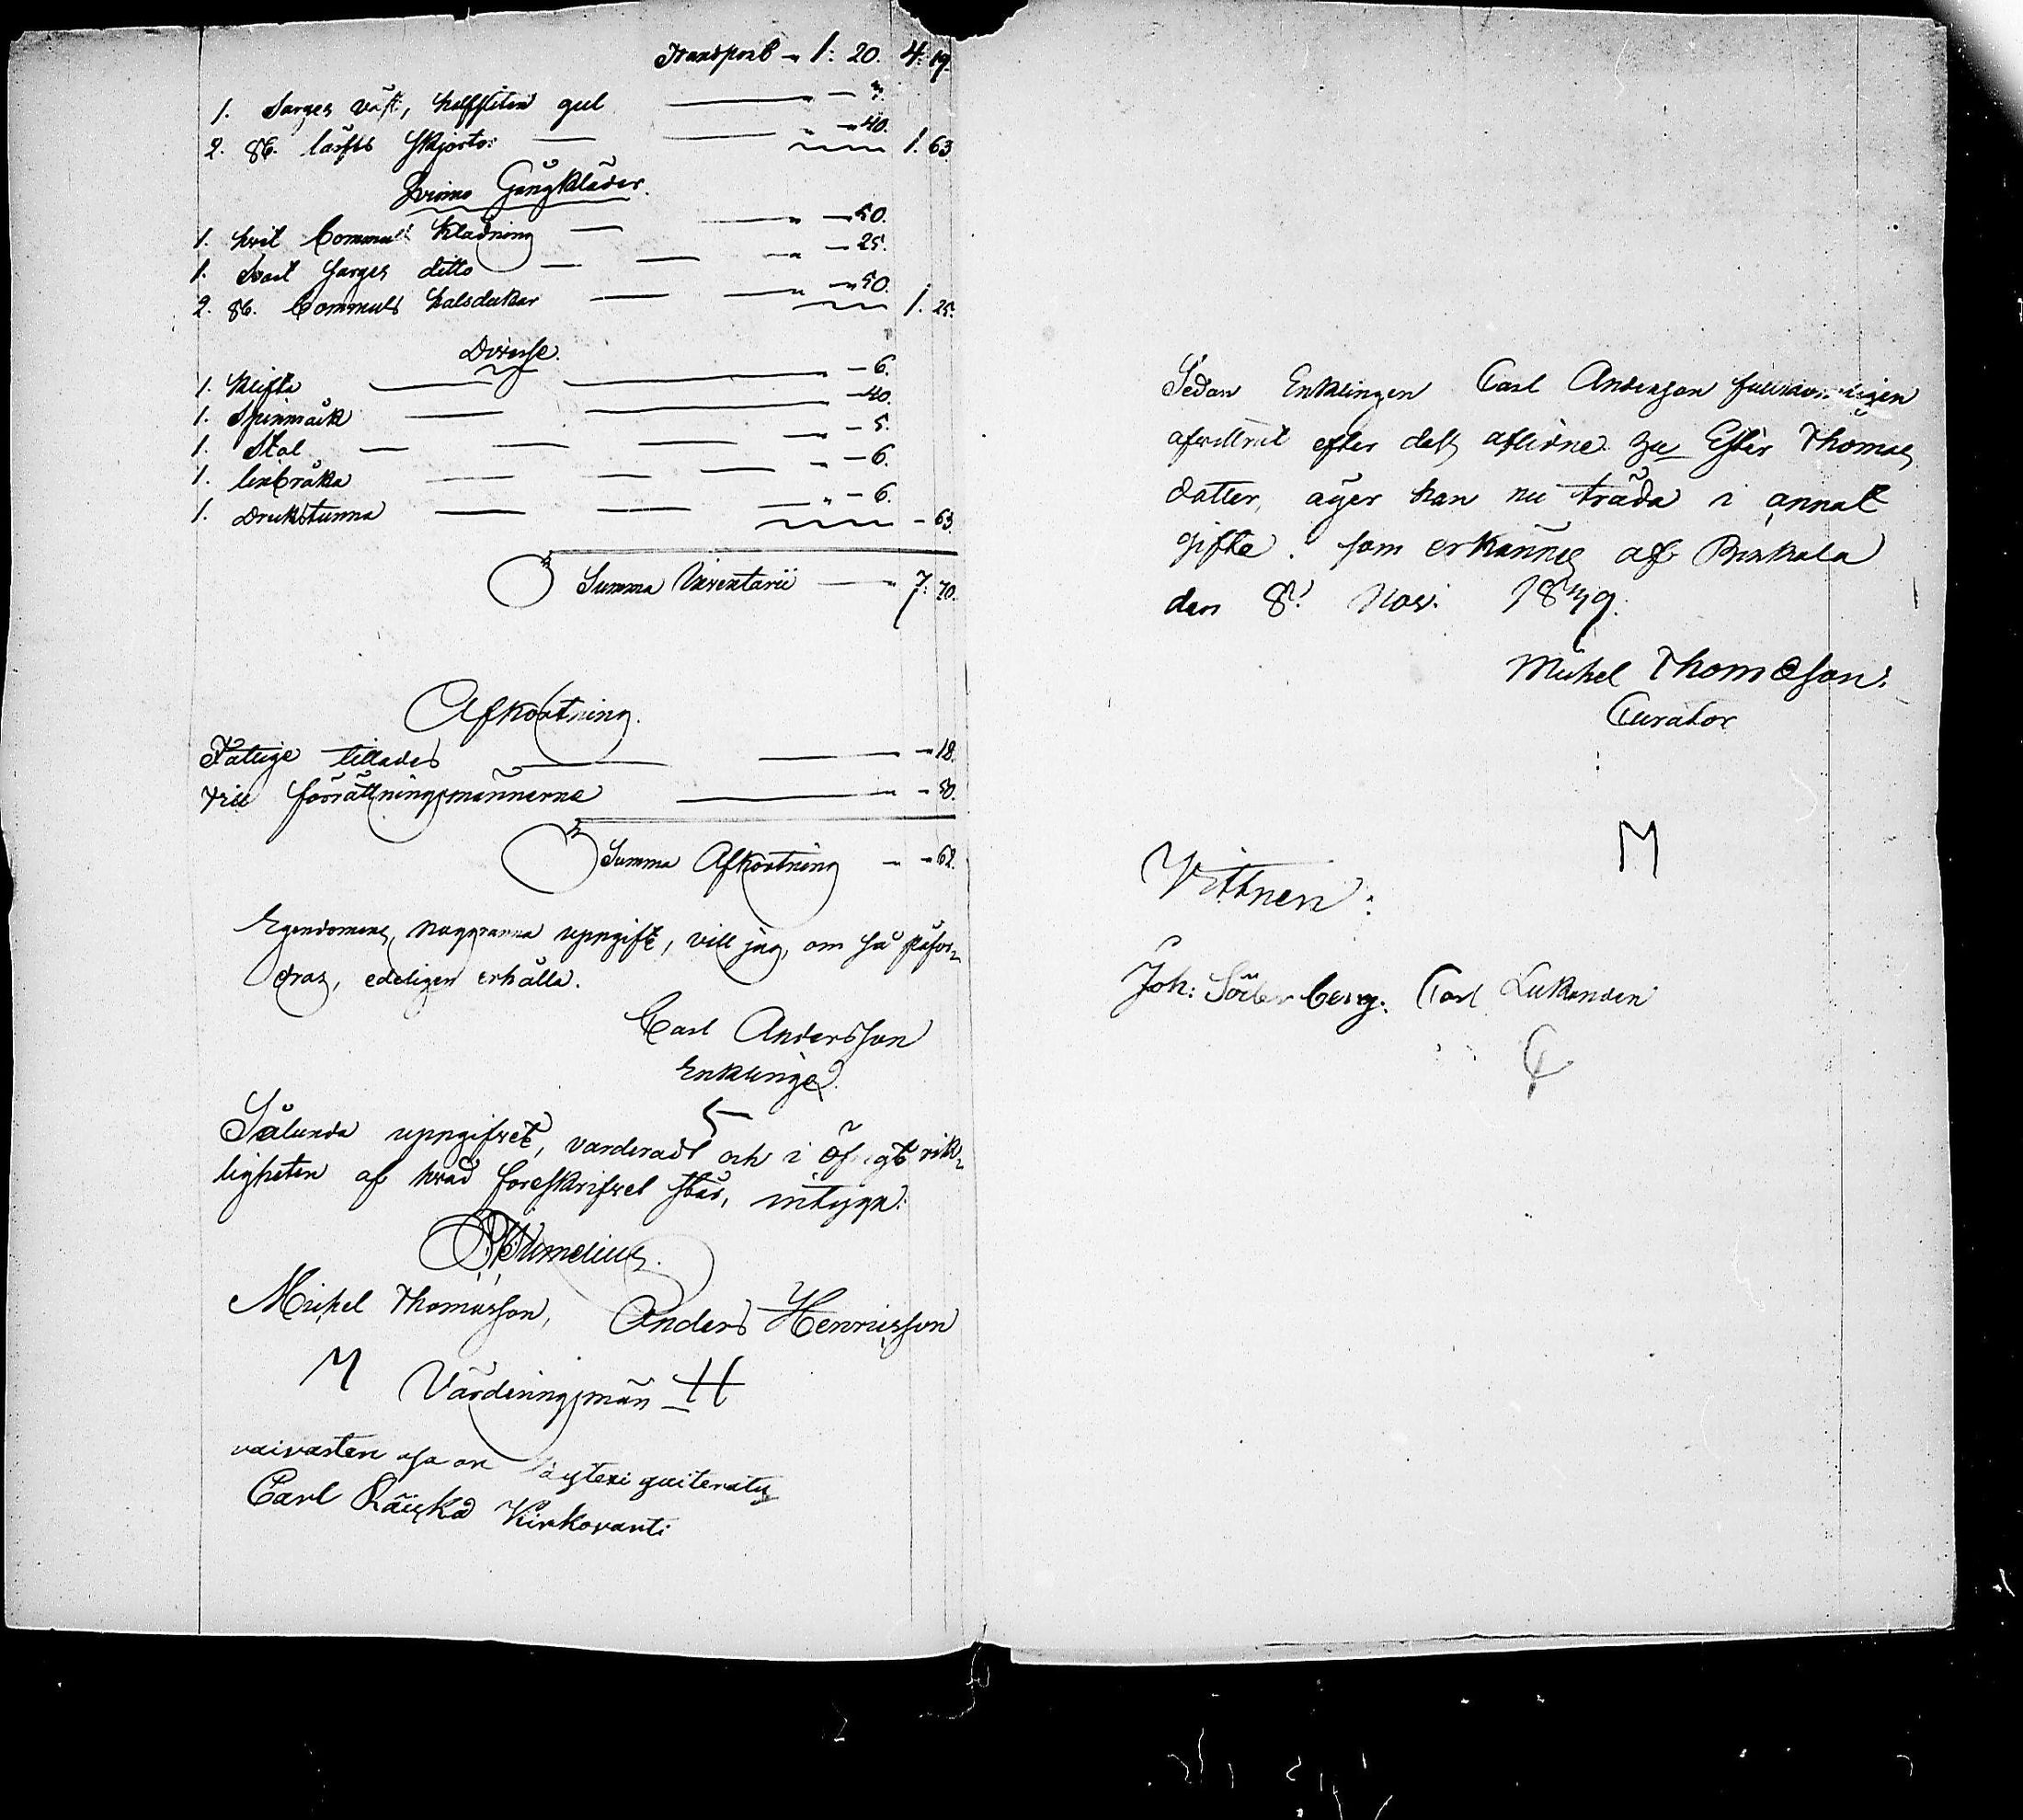 Transport - 1: 20. 4: 19.
1. Sarges väst, halfsliten gul - 3.
2. St. lärfts Skjortor - 40. 1. 63.
Qvinno Gångkläder.
1. hvit Bommulls Klädning - 50.
1. Svart Sarges ditto - 25.
2. St. Bommuls halsdukar - 50. 1. 25.
Diverse.
1. Klifta - 6.
1. Spinnråck - 40.
1. Stol - 5.
1. linbråka - 6.
1. Drickstunna - 6. - 63.
Summa Inventarii - 7: 70.
Afkortning.
Fattige tillades - 18.
Till förrättningsmännerna - 50.
Summa Afkortning - 68.
Egendomens noggranna uppgift, vill jag, om så påfor-
dras, edeligen erhålla.
Carl Andersson
Enklinge
Sålunda uppgifvet, värderadt och i öfrigt rik-
tigheten af hvad föreskrifvet står, intyga:
Michel Thomasson, Anders Henricsson
M Värderingsmän H
vaivasten osa on quiteratu
Carl Räiskä Kirkovarti
Sedan Enklingen Carl Anderson fullkomligen
afvittrat efter dess aflidne hu Ester Thomas
datter, äger han nu träda i annat
gifte. som erkännes af Pirkala
den 8: Nov. 1849.
Michel Thomason.
Curator
M
Vittnen:
Joh: Söderberg. Carl Lukander